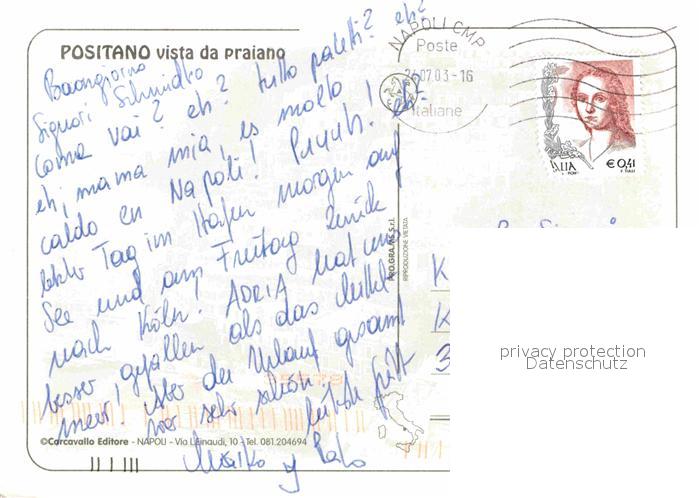 POSITANO vista da praiano
Buongiorno
Signori Schmidko
Come vai? eh? tutto paletti? eh?
eh, mama mia, es molto
caldo en Napoli! Puuuh! eh?
letzter Tag im Hafen morgen auf
See und am Freitag zurück
nach Köln! ADRIA hat uns
besser gefallen als das Mittel
meer! Aber der Urlaub gesamt
war sehr schön!
Marko y
©Carcavallo Editore - NAPOLI - Via L.Einaudi, 10 - Tel. 081.204694
PRO.GRA.MS S.r.l.
RIPRODUZIONE VIETATA
NAPOLI CMP
Poste
07.03-16
Italiane
ITALIA
€ 0,41
K
K
privacy protection
Datenschutz